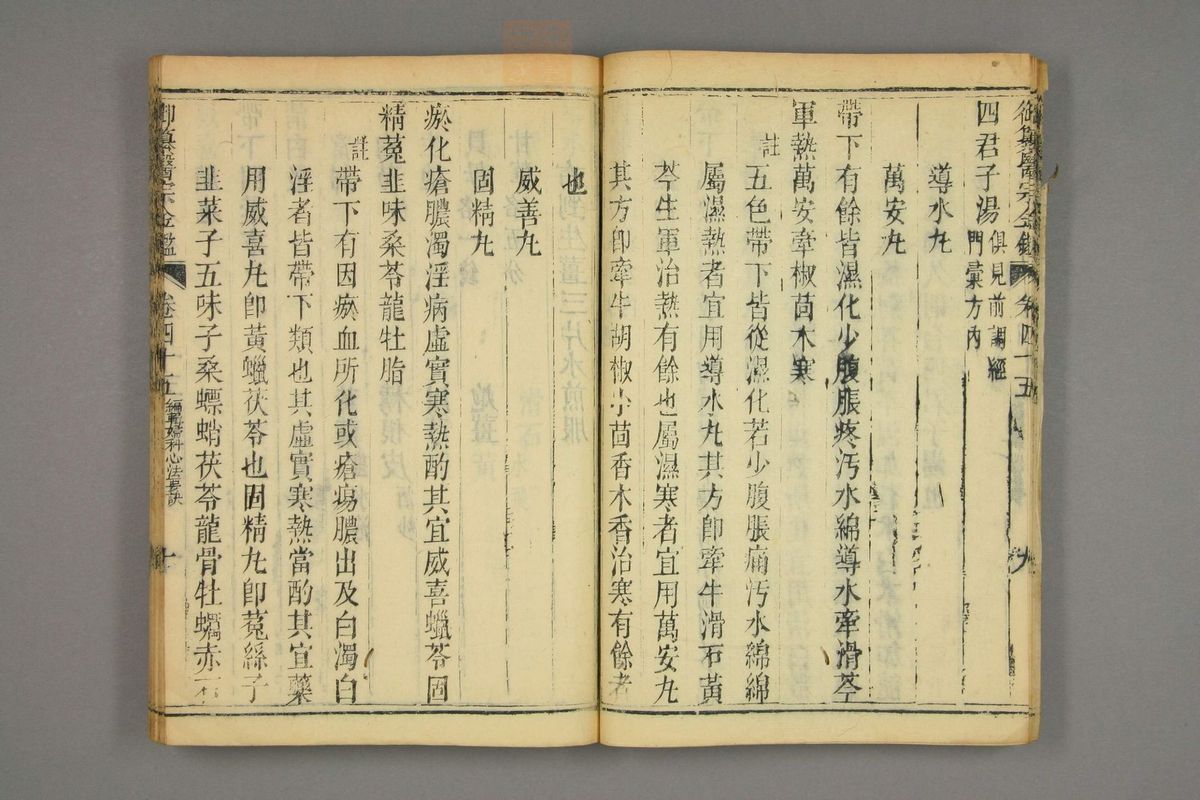 御纂醫宗金鑑 卷四十五 九
四君子湯 俱見前調經
門彙方內
導水丸
萬安丸
帶下有餘皆濕化少腹脹疼汚水綿導水牽滑芩
軍熱萬安牽椒茴木寒
註
五色帶下皆從濕化若少腹脹痛汚水綿綿
屬濕熱者宜用導水丸其方卽牽牛滑石黃
芩生軍治熱有餘也屬濕寒者宜用萬安丸
其方卽牽牛胡椒小茴香木香治寒有餘者
也
威善丸
固精丸
瘀化瘡膿濁淫病虛實寒熱酌其宜威喜蠟苓固
精菟韭味桑苓龍牡脂
註
帶下有因瘀血所化或瘡瘍膿出及白濁白
淫者皆帶下類也其虛實寒熱當酌其宜藥
用威喜丸卽黃蠟茯苓也固精丸卽菟絲子
韭菜子五味子桑螵蛸茯苓龍骨牡蠣赤石
御纂醫宗金鑑 卷四十五 編輯婦科心法要訣 十